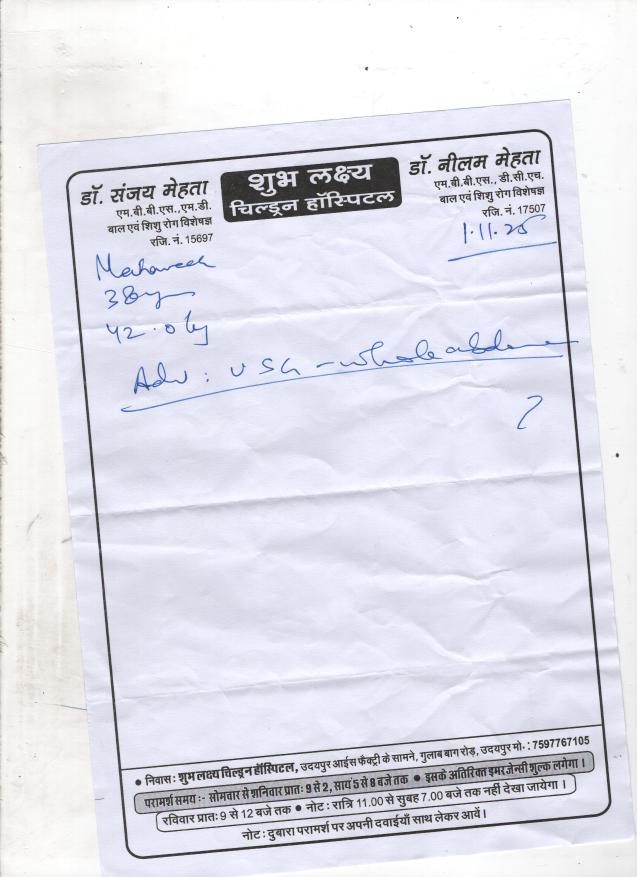 डॉ. संजय मेहता
एम.बी.बी.एस.,एम.डी.
बाल एवं शिशु रोग विशेषज्ञ
रजि. नं. 15697
शुभ लक्ष्य
चिल्ड्रन हॉस्पिटल
डॉ. नीलम मेहता
एम.बी.बी.एस., डी.सी.एच.
बाल एवं शिशु रोग विशेषज्ञ
रजि. नं. 17507
1.11.25
42.0 kg
Adv : USG - whole abdomen
?
• निवास : शुभ लक्ष्य चिल्ड्रन हॉस्पिटल, उदयपुर आईस फैक्ट्री के सामने, गुलाब बाग रोड़, उदयपुर मो. : 7597767105
परामर्श समय :- सोमवार से शनिवार प्रातः 9 से 2, सायं 5 से 8 बजे तक • इसके अतिरिक्त इमरजेन्सी शुल्क लगेगा।
रविवार प्रातः 9 से 12 बजे तक • नोट : रात्रि 11.00 से सुबह 7.00 बजे तक नहीं देखा जायेगा।
नोट : दुबारा परामर्श पर अपनी दवाईयाँ साथ लेकर आवें।